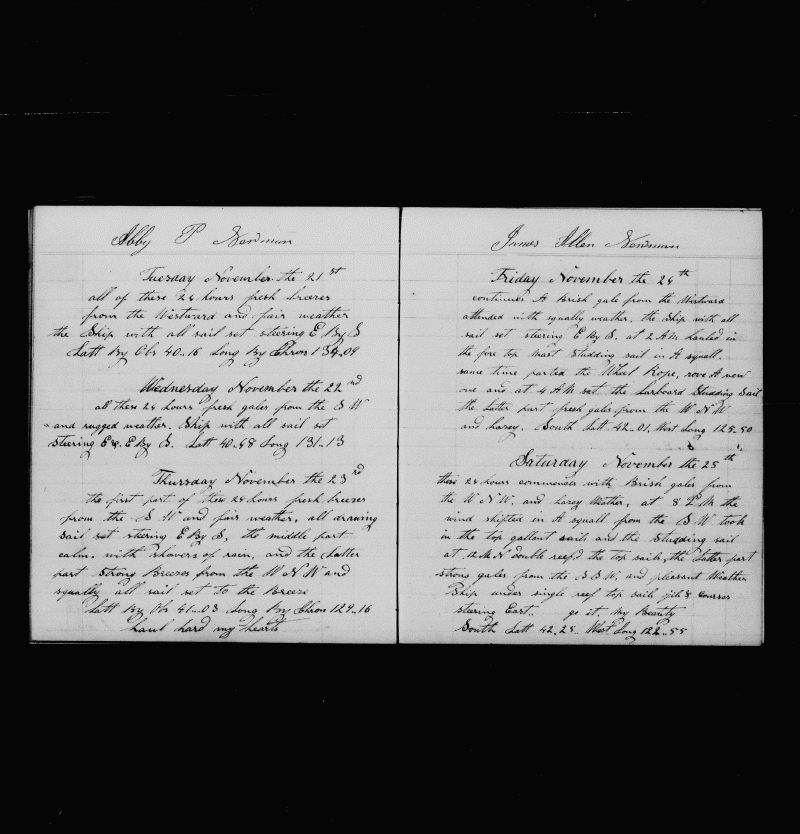 Abby P Newman
Tuesday November the 21st
all of these 24 hours fresh breezes
from the Westward and fair weather
the Ship with all sail set steering E By S
Latt By Obs 40.16 Long By Chron 134.09
Wednesday November the 22nd
all these 24 hours fresh gales from the S W
and rugged weather. Ship with all sail set
steering E & E By S. Latt 40.48 Long 131..13
Thursday November the 23rd
the first part of these 24 hours fresh breezes
from the S W and fair weather, all drawing
sail set steering E By S, the middle part
calm, with showers of rain, and the Latter
part Strong Breezes from the W N W and
squally all sail set to the Breeze
Latt By Obs 41..03 Long By Chron 129.16
haul hard my hearts
James Allen Newman
Friday November the 24th
continues A Brish gale from the Westward
attended with squally weather, the Ship with all
sail set steering E By S. at 2 A M hauled in
the fore top mast Studding sail in A squall.
same time parted the Wheel Rope, rove A new
one and at 4 A M set the Larboard Studding Sail
the Latter part fresh gales from the W N W
and hazey. South Latt 42..01 West Long 125..50
Saturday November the 25th
these 24 hours commences with Brish gales from
the W N W. and hazey Weather, at 8 P M the
wind shifted in A squall from the S W took
in the top gallant sails and the Studding sail
at M N double reef'd the top sails, the Latter part
strong gales from the S S W, and pleasant Weather
Ship under single reef top sails jib & courses
steering East. go it my Beauty
South Latt 42.25 West Long 122..55